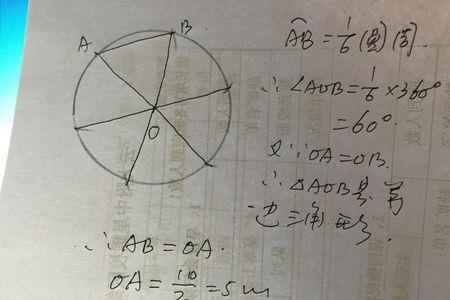 A
B
O
AB = 1/6 (圆)周.
∴ ∠AOB = 1/6 × 360°
= 60°.
又∵ OA = OB.
∴ △AOB是等
边三角形.
∴ AB = OA.
OA = 10/2 = 5m